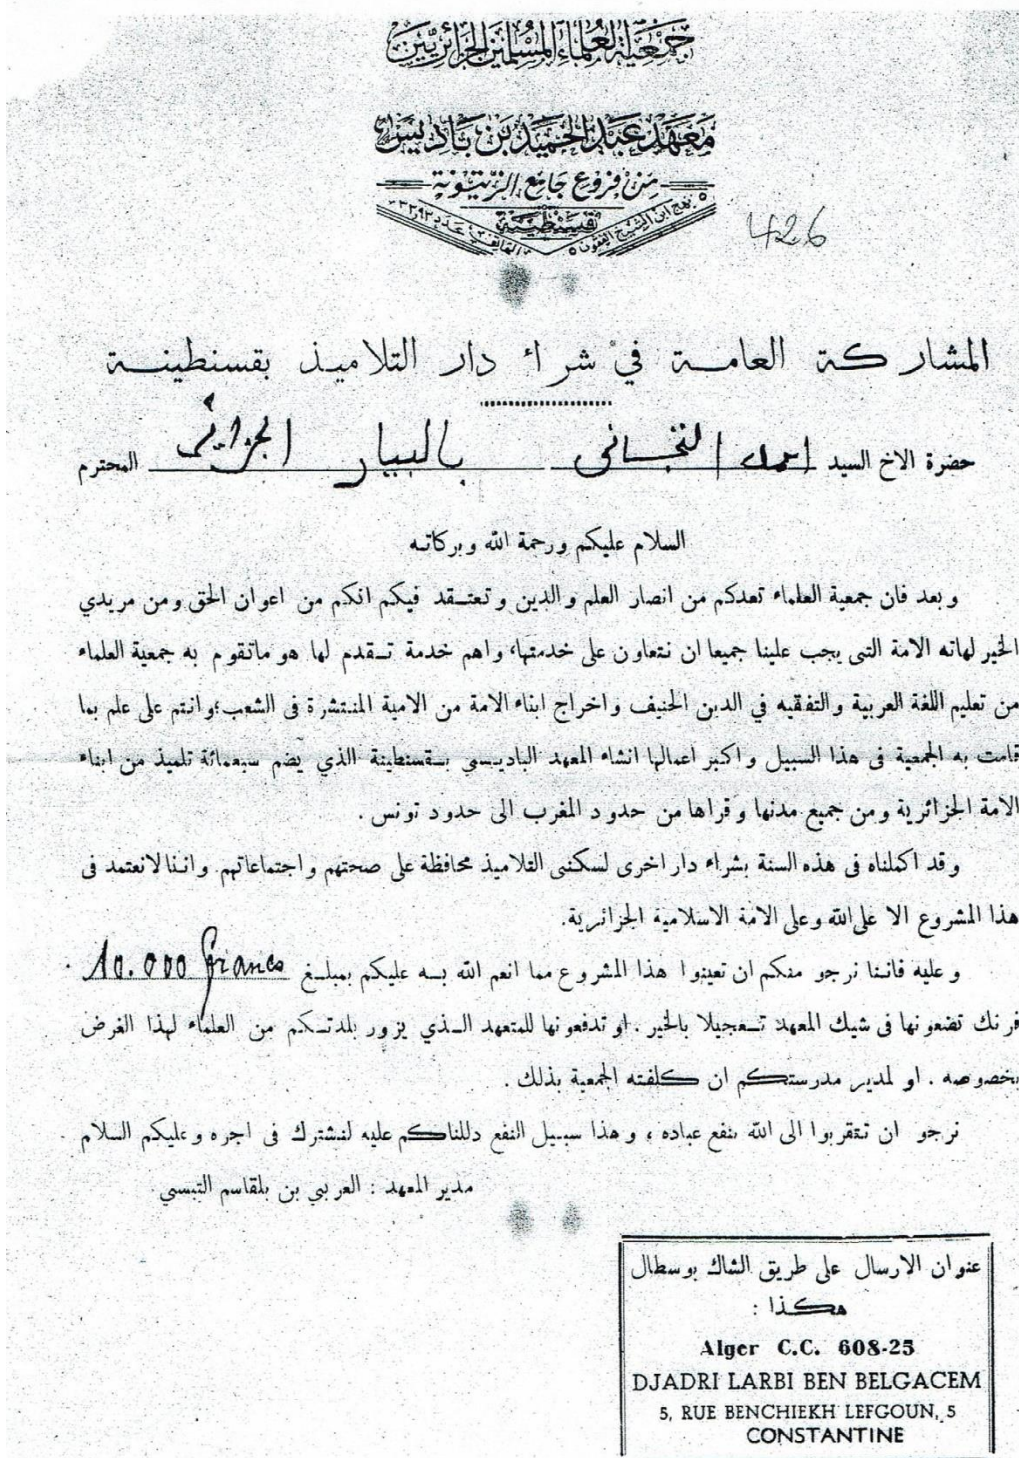 جمعية العلماء المسلمين الجزائريين
معهد عبد الحميد بن باديس
من فروع جامع الزيتونة
قسنطينة
٥ نهج ابن الشيخ الفقون ٥
الهاتف: عدد ٩٣-٣٢
426
المشاركة العامة في شراء دار التلاميذ بقسنطينة
حضرة الاخ السيد احمد التجاني بالبيار الجزائر المحترم
السلام عليكم ورحمة الله وبركاته
وبعد فان جمعية العلماء تعدكم من انصار العلم والدين وتعتقد فيكم انكم من اعوان الحق ومن مريدي
الخير لهاته الامة التى يجب علينا جميعا ان نتعاون على خدمتها، واهم خدمة تقدم لها هو ماتقوم به جمعية العلماء
من تعليم اللغة العربية والتفقيه في الدين الحنيف واخراج ابناء الامة من الامية المنتشرة فى الشعب؛وانتم على علم بما
قامت به الجمعية فى هذا السبيل واكبر اعمالها انشاء المعهد الباديسي بقسنطينة الذي يضم سبعمائة تلميذ من ابناء
الامة الجزائرية ومن جميع مدنها وقراها من حدود المغرب الى حدود تونس .
وقد اكملناه فى هذه السنة بشراء دار اخرى لسكنى التلاميذ محافظة على صحتهم واجتماعاتهم وانـنالانعتمد فى
هذا المشروع الا على الله وعلى الامة الاسلامية الجزائرية.
وعليه فانـنا نرجو منكم ان تعينوا هذا المشروع مما انعم الله به عليكم بمبلغ 10.000 francs .
فرنك تضعونها فى شيك المعهد تعجيلا بالخير . او تدفعونها للمتعهد الذي يزور بلدتكم من العلماء لهذا الغرض
بخصوصه . او لمدير مدرستكم ان كلفته الجمعية بذلك .
نرجو ان تتقربوا الى الله بنفع عباده ، وهذا سبيل النفع دللناكم عليه لنشترك فى اجره وعليكم السلام
مدير المعهد : العربي بن بلقاسم التبسي
عنوان الارسال على طريق الشاك بوسطال
هكذا :
Alger C.C. 608-25
DJADRI LARBI BEN BELGACEM
5, RUE BENCHIEKH LEFGOUN, 5
CONSTANTINE